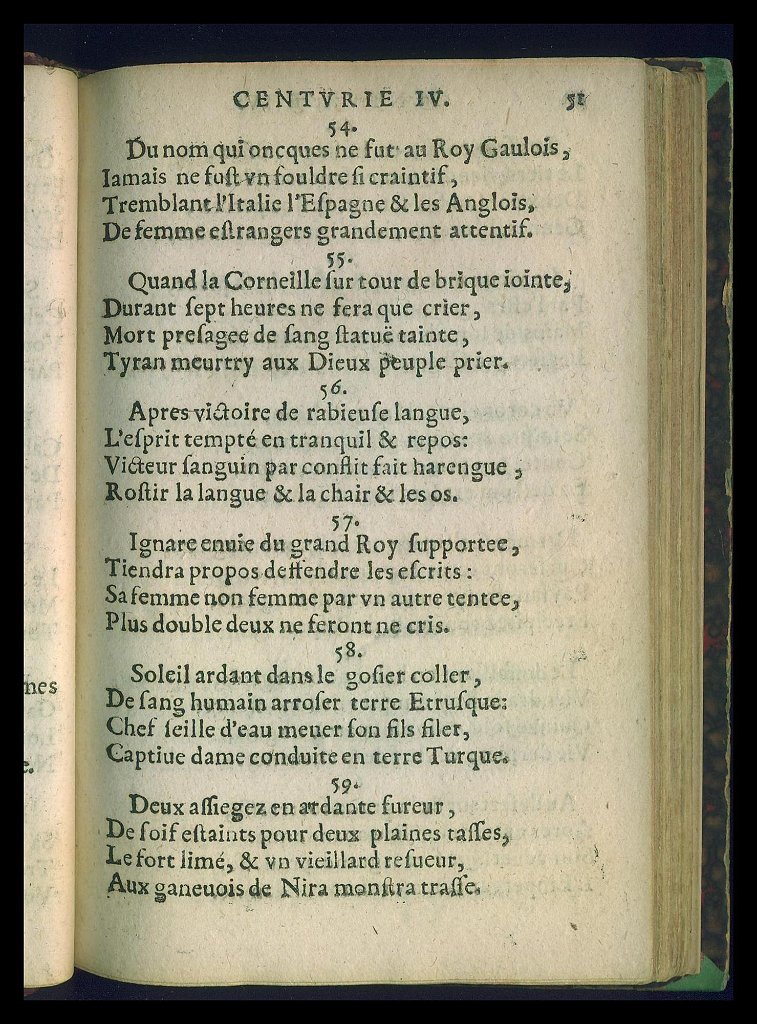 CENTVRIE IV. 51
54.
Du nom qui oncques ne fut au Roy Gaulois,
Iamais ne fuſt vn fouldre ſi craintif,
Tremblant l'Italie l'Eſpagne & les Anglois,
De femme eſtrangers grandement attentif.
55.
Quand la Corneille ſur tour de brique iointe,
Durant ſept heures ne fera que crier,
Mort preſagee de ſang ſtatuë tainte,
Tyran meurtry aux Dieux peuple prier.
56.
Apres victoire de rabieuſe langue,
L'eſprit tempté en tranquil & repos:
Victeur ſanguin par conflit fait harengue,
Roſtir la langue & la chair & les os.
57.
Ignare enuie du grand Roy ſupportee,
Tiendra propos deffendre les eſcrits:
Sa femme non femme par vn autre tentee,
Plus double deux ne feront ne cris.
58.
Soleil ardant dans le goſier coller,
De ſang humain arroſer terre Etruſque:
Chef ſeille d'eau mener ſon fils filer,
Captiue dame conduite en terre Turque.
59.
Deux aſſiegez en ardante fureur,
De ſoif eſtaints pour deux plaines taſſes,
Le fort limé, & vn vieillard reſueur,
Aux ganeuois de Nira monſtra traſſe.
nes
e.